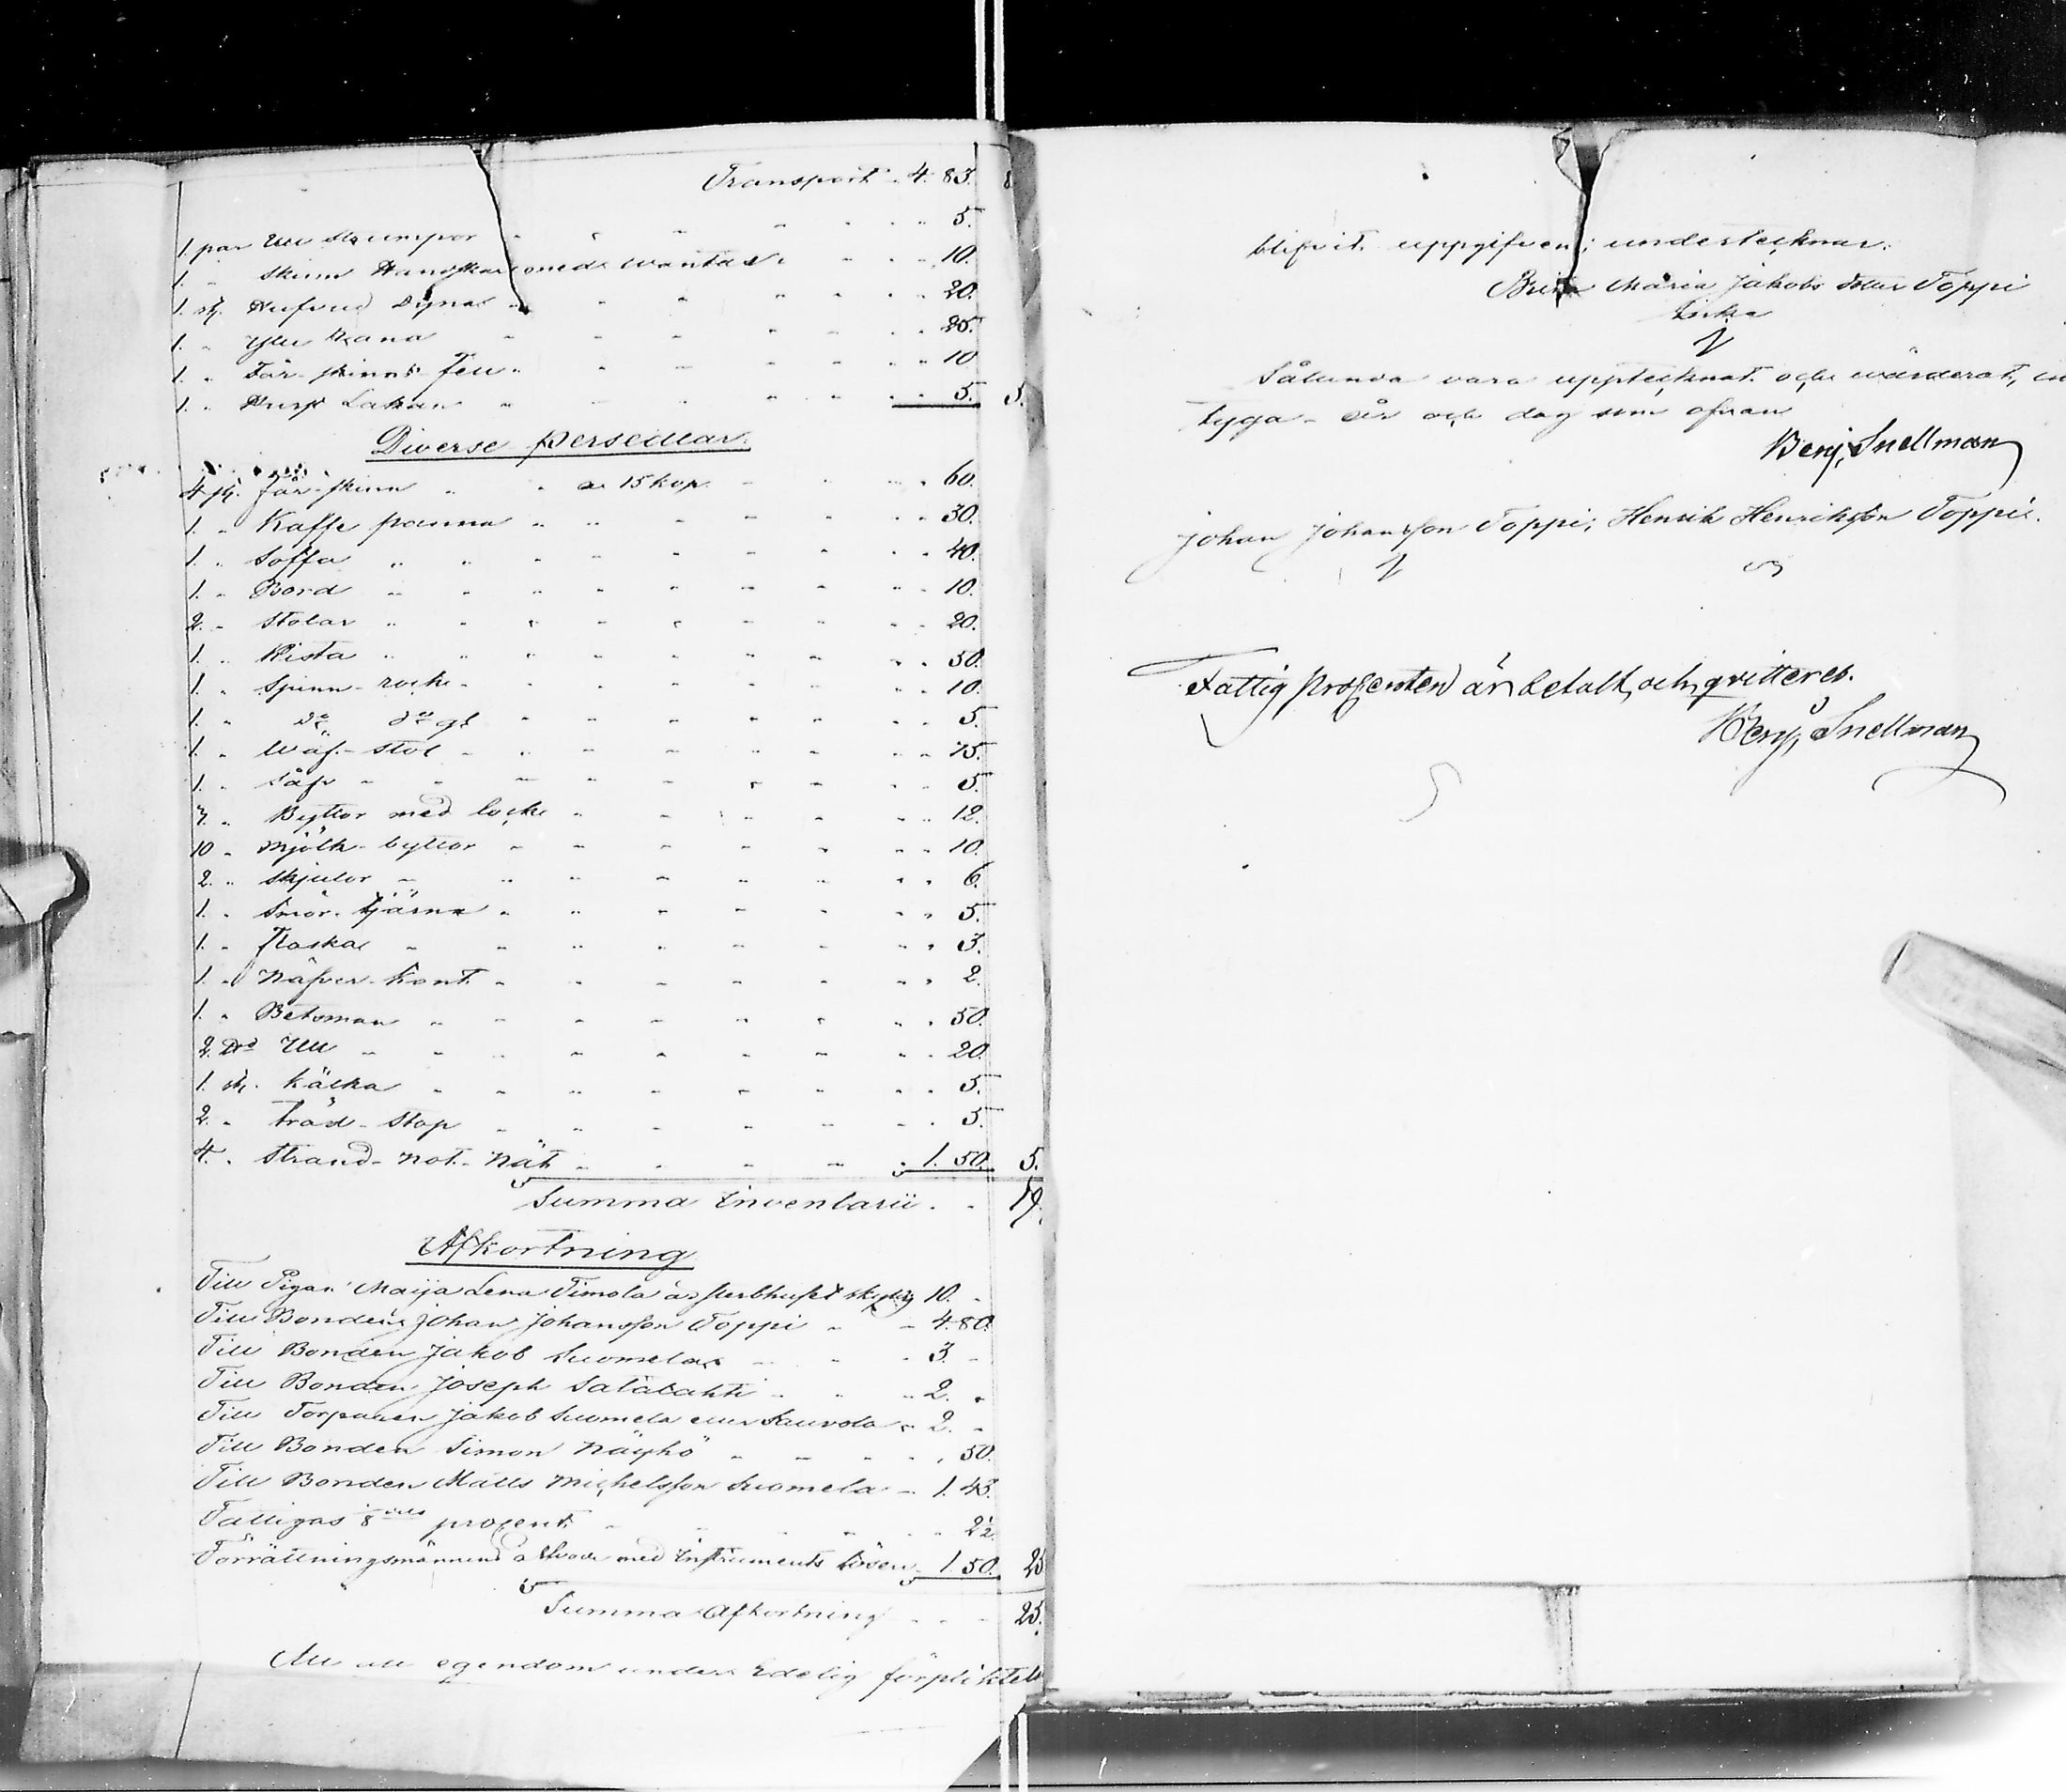 Transport 4. 83. 8
1. par Ull Strumpor 5.
1. " Skinn Handskar med Wantar 10.
1. st. Hufvud Dyna 20.
1. " Ylle 25.
1. " Får-skinns-fell 10
1. " Lakan 5. 5.
Diverse Persedlar.
4 st. får-skinn a 15 kop. 60.
1. " Kaffe panna 30.
1. " Soffa 40.
1. " Bord 10.
2. " Stolar 20.
1. " Kista 50.
1. " Spinn-rock 10.
1. " do do gl 5.
1. " Wäf-stol 15.
1. " Såfv 5.
7. " Byttor med lock 12.
10 " Mjölk-byttor 10.
2. " Skjulor 6.
1. " Smör-kjärna 5.
1. " flaska 3.
1. " Näfver-Kont 2.
1. " Betsman 50.
2. Ull 20.
1. st. Kälka 5.
2. " träd-stop 5.
4. " Strand-not-Nät 1. 50. 5.
Summa Inventarii 19.
Afkortning
Till Pigan Maija Lena Timola är sterbhuset skyldig 10. -
Till Bonden Johan Johansson Toppi 4. 80.
Till Bonden Jakob Suomela 3. -
Till Bonden Joseph Satalahti 2. -
Till Torparen Jakob Suomela eller Sauvola 2. -
Till Bonden Simon Näyhö 50.
Till Bonden Matts Michelsson Suomela 1. 43.
Fattigas 1/8 dels procent 2 1/2
Förrättningsmännens arfvode med Instruments lösen 1. 50. 25
Summa Afkortning 25.
Att all egendom under Edelig förpliktel
blifvit uppgifven; undertecknar.
Brita Maria Jakobs dotter Toppi
Enka
Sålunda vara upptecknat och wärderat,
tyga - år och dag som ofvan
Benj. Snellman
Johan Johansson Toppi; Henrik Henriksson Toppi.
Fattig procenten är betalt, och qvitteras.
Benj. Snellman